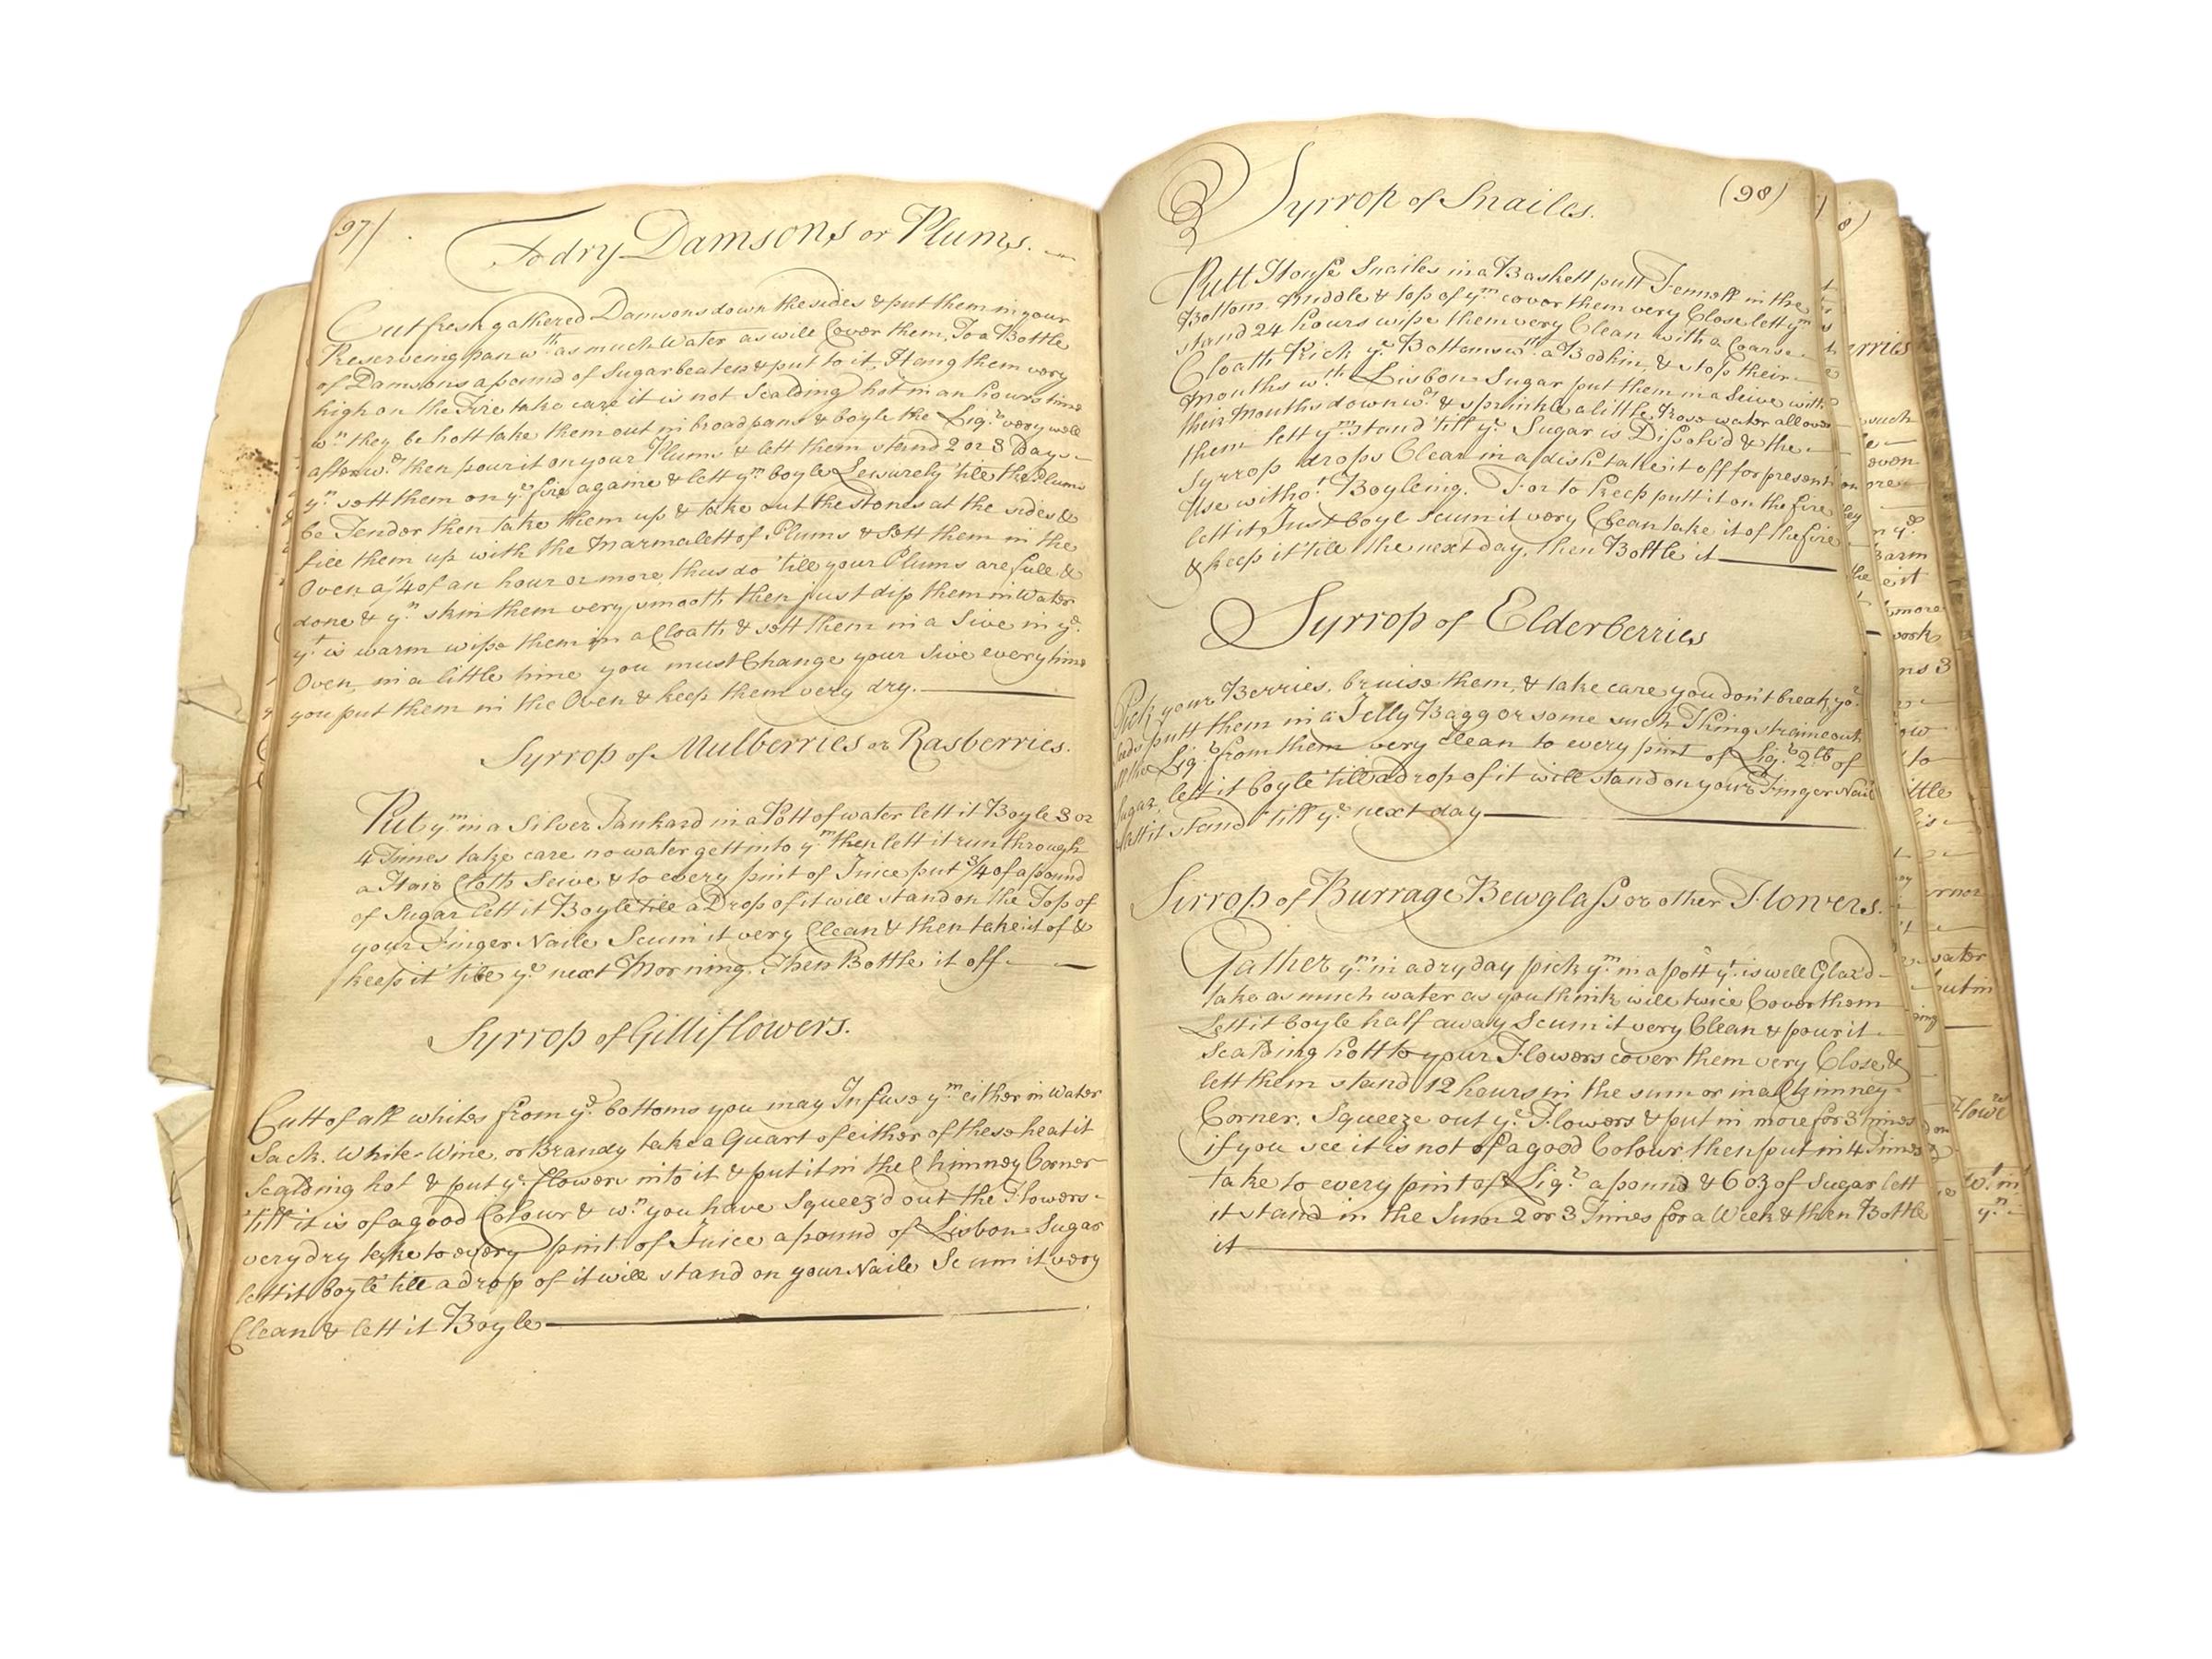 (97)
To dry Damsons or Plums.
Cut fresh gathered Damsons down the sides & put them in your
Reserveing pan wth as much Water as will Cover them, To a Bottle
of Damsons a pound of Sugar beaten & put to it, Hang them very
high on the Fire take care it is not Scalding hot in an hours time
wn they be hott take them out in broad pans & boyle the Liqr very well
afterwd then pour it on your Plums & lett them stand 2 or 3 Days
yn sett them on ye fire againe & lett ym boyle Leisurely till the Plums
be Tender then take them up & take out the stones at the sides &
fill them up with the Marmalett of Plums & Sett them in the
Oven a 1/4 of an hour or more, thus do 'till your Plums are full &
done & yn skin them very smooth then just dip them in Water
yt is warm wipe them in a Cloath & sett them in a Sive in ye
Oven, in a little time you must Change your Sive every time
you put them in the Oven & keep them very dry.
Syrrop of Mulberries or Rasberries.
Put ym in a Silver Tankard in a Pott of water lett it Boyle 3 or
4 Times take care no water gett into ym then lett it run through
a Hair Cloth Seive & to every pint of Juice put 3/4 of a pound
of Sugar lett it Boyle till a Drop of it will stand on the Top of
your Finger Naile Scum it very Clean & then take it of &
keep it 'till ye next Morning, Then Bottle it off
Syrrop of Gilliflowers.
Cutt of all whites from ye bottoms you may Infuse ym either in Water
Sack, White-Wine, or Brandy take a Quart of either of these heat it
Scalding hot & put ye flowers into it & put it in the Chimney Corner
'till it is of a good Colour & wn you have Squeez'd out the Flowers
very dry take to every pint of Juice a pound of Lisbon Sugar
lett it boyle till a drop of it will stand on your Naile Scum it very
Clean & lett it Boyle
Syrrop of Snailes. (98)
Putt House Snailes in a Baskett putt Fennell in the
Bottom Middle & top of ym cover them very Close lett ym
stand 24 hours wipe them very Clean with a Coarse
Cloath Prick ye Bottoms wth a Bodkin, & stop their
Mouths wth Lisbon Sugar put them in a Seive with
their Mouths downwd & sprinkle a little Rose water all over
them lett ym stand 'till ye Sugar is Dissolv'd & the
Syrrop drops Clear in a dish take it off for present
Use witho't Boyleing. For to keep putt it on the fire
lett it Just boyl scum it very Clean take it of the fire
& keep it 'till the next day, then Bottle it
Syrrop of Elderberries
Pick your Berries, bruise them, & take care you don't break ye
putt them in a Jelly Bagg or some such Thing straine out
all the Liqr from them very clean to every pint of Liqr 2lb of
Sugar, lett it boyle 'till a drop of it will stand on your Finger Nail
lett it stand 'till ye next day
Sirrop of Burrage Bewglass or other Flowers.
Gather ym in a dry day pick ym in a pott yt is well Glaz'd
take as much water as you think will twice Cover them
Lett it boyle half away Scum it very Clean & pour it
Scalding hott to your Flowers cover them very Close &
lett them stand 12 hours in the sun or in a Chimney-
Corner, Squeeze out ye Flowers & put in more for 3 times
if you see it is not of a good Colour then put in 4 Times
take to every pint of Liqr a pound & 6 oz of Sugar lett
it stand in the Sun 2 or 3 Times for a Week & then Bottle
it